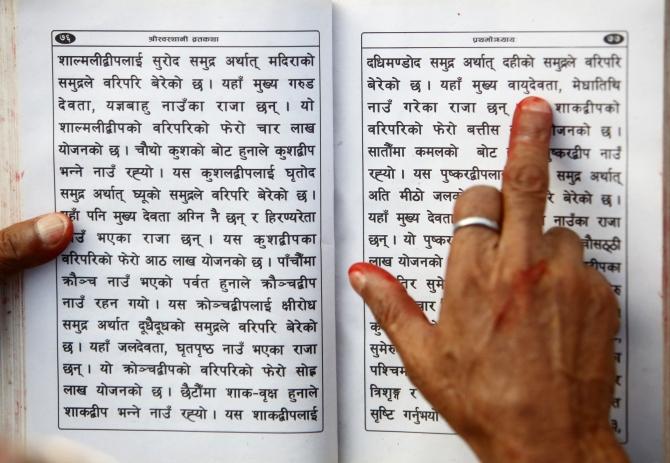 ७६
श्रीस्वस्थानी व्रतकथा
शाल्मलीद्वीपलाई सुरोद समुद्र अर्थात् मदिराको
समुद्रले वरिपरि बेरेको छ । यहाँ मुख्य गरुड
देवता, यज्ञबाहु नाउँका राजा छन् । यो
शाल्मलीद्वीपको वरिपरिको फेरो चार लाख
योजनको छ । चौथो कुशको बोट हुनाले कुशद्वीप
भन्ने नाउँ रह्यो । यस कुशलद्वीपलाई घृतोद
समुद्र अर्थात् घ्यूको समुद्रले वरिपरि बेरेको छ ।
पनि मुख्य देवता अग्नि नै छन् र हिरण्यरेता
भएका राजा छन् । यस कुशद्वीपका
वरिपरिको फेरो आठ लाख योजनको छ । पाँचौंमा
क्रौञ्च नाउँ भएको पर्वत हुनाले क्रौञ्चद्वीप
नाउँ रहन गयो । यस क्रोञ्चद्वीपलाई क्षीरोध
समुद्र अर्थात दूधैदूधको समुद्रले वरिपरि बेरेको
छ । यहाँ जलदेवता, घृतपृष्ठ नाउँ भएका राजा
छन् । यो क्रोञ्चद्वीपको वरिपरिको फेरो सोह्र
लाख योजनको छ । छैटौंमा शाक-वृक्ष हुनाले
शाकद्वीप भन्ने नाउँ रह्यो । यस शाकद्वीपलाई
प्रथमोऽध्याय
७७
दधिमण्डोद समुद्र अर्थात् दहीको समुद्रले वरिपरि
बेरेको छ । यहाँ मुख्य वायुदेवता, मेधातिथि
नाउँ गरेका राजा छन् शाकद्वीपको
वरिपरिको फेरो बत्तीस योजनको छ ।
सातौंमा कमलको बोट पुष्करद्वीप नाउँ
रह्यो । यस पुष्करद्वीपलाई समुद्र अर्थात्
अति मीठो जलको बेरेको छ ।
यहाँ मुख्य देवता नाउँका राजा
छन् । यो चौसठ्ठी
लाख योजनको द्वीपका
सुमे
चार
पश्चिम
त्रिशृङ्ग र
सृष्टि गर्नुभयो